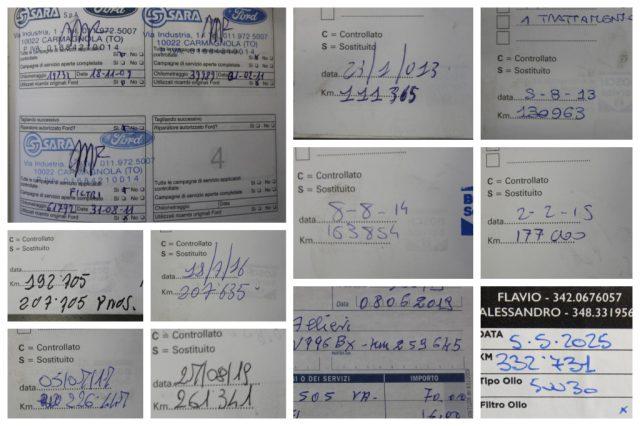 SARA S.p.A. Ford
Via Industria,
10022 CARMAGNOLA (TO)
Campagne di servizio aperte completate Sì No
Chilometraggio 19731 Data 18-11-09
Utilizzati ricambi originali Ford Sì No
SARA Ford
Via Industria, 011.972.5007
10022 CARMAGNOLA (TO)
Campagne di servizio aperte completate Sì No
Chilometraggio 39389 Data
Utilizzati ricambi originali Ford Sì No
Tagliando successivo
Riparatore autorizzato Ford? Sì No
SARA Ford
Via Industria, 011.972.5007
10022 CARMAGNOLA (TO)
Campagne di servizio aperte completate Sì No
FILTRI
61792 Data 31-08-11
Utilizzati ricambi originali Ford Sì No
Tagliando successivo
Riparatore autorizzato Ford? Sì No
4
Tutte le campagne di servizio applicabili
controllate Sì No
Campagne di servizio aperte completate Sì No
Chilometraggio Data
Utilizzati ricambi originali Ford Sì No
C = Controllato
S = Sostituito
data 23/1/013
Km. 111 365
1 TRATTAMENTO
C = Controllato
S = Sostituito
data 5-8-13
Km. 130963
C = Controllato
S = Sostituito
data 8-8-14
Km. 163854
C = Controllato
S = Sostituito
data 2-2-15
Km. 177 000
C = Controllato
S = Sostituito
data
Km. 192 705
207.705 PROS.
C = Controllato
S = Sostituito
data 18/7/16
Km. 207.635
C = Controllato
S = Sostituito
data
Km.
C = Controllato
S = Sostituito
data 27/08/19
Km. 261 341
Data 08062019
Km 259645
I O DEI SERVIZI IMPORTO
505 70.00
16.00
FLAVIO - 342.0676057
ALESSANDRO - 348.331956
DATA 5.5.2025
KM 332.731
Tipo Olio 5W30
Filtro Olio x